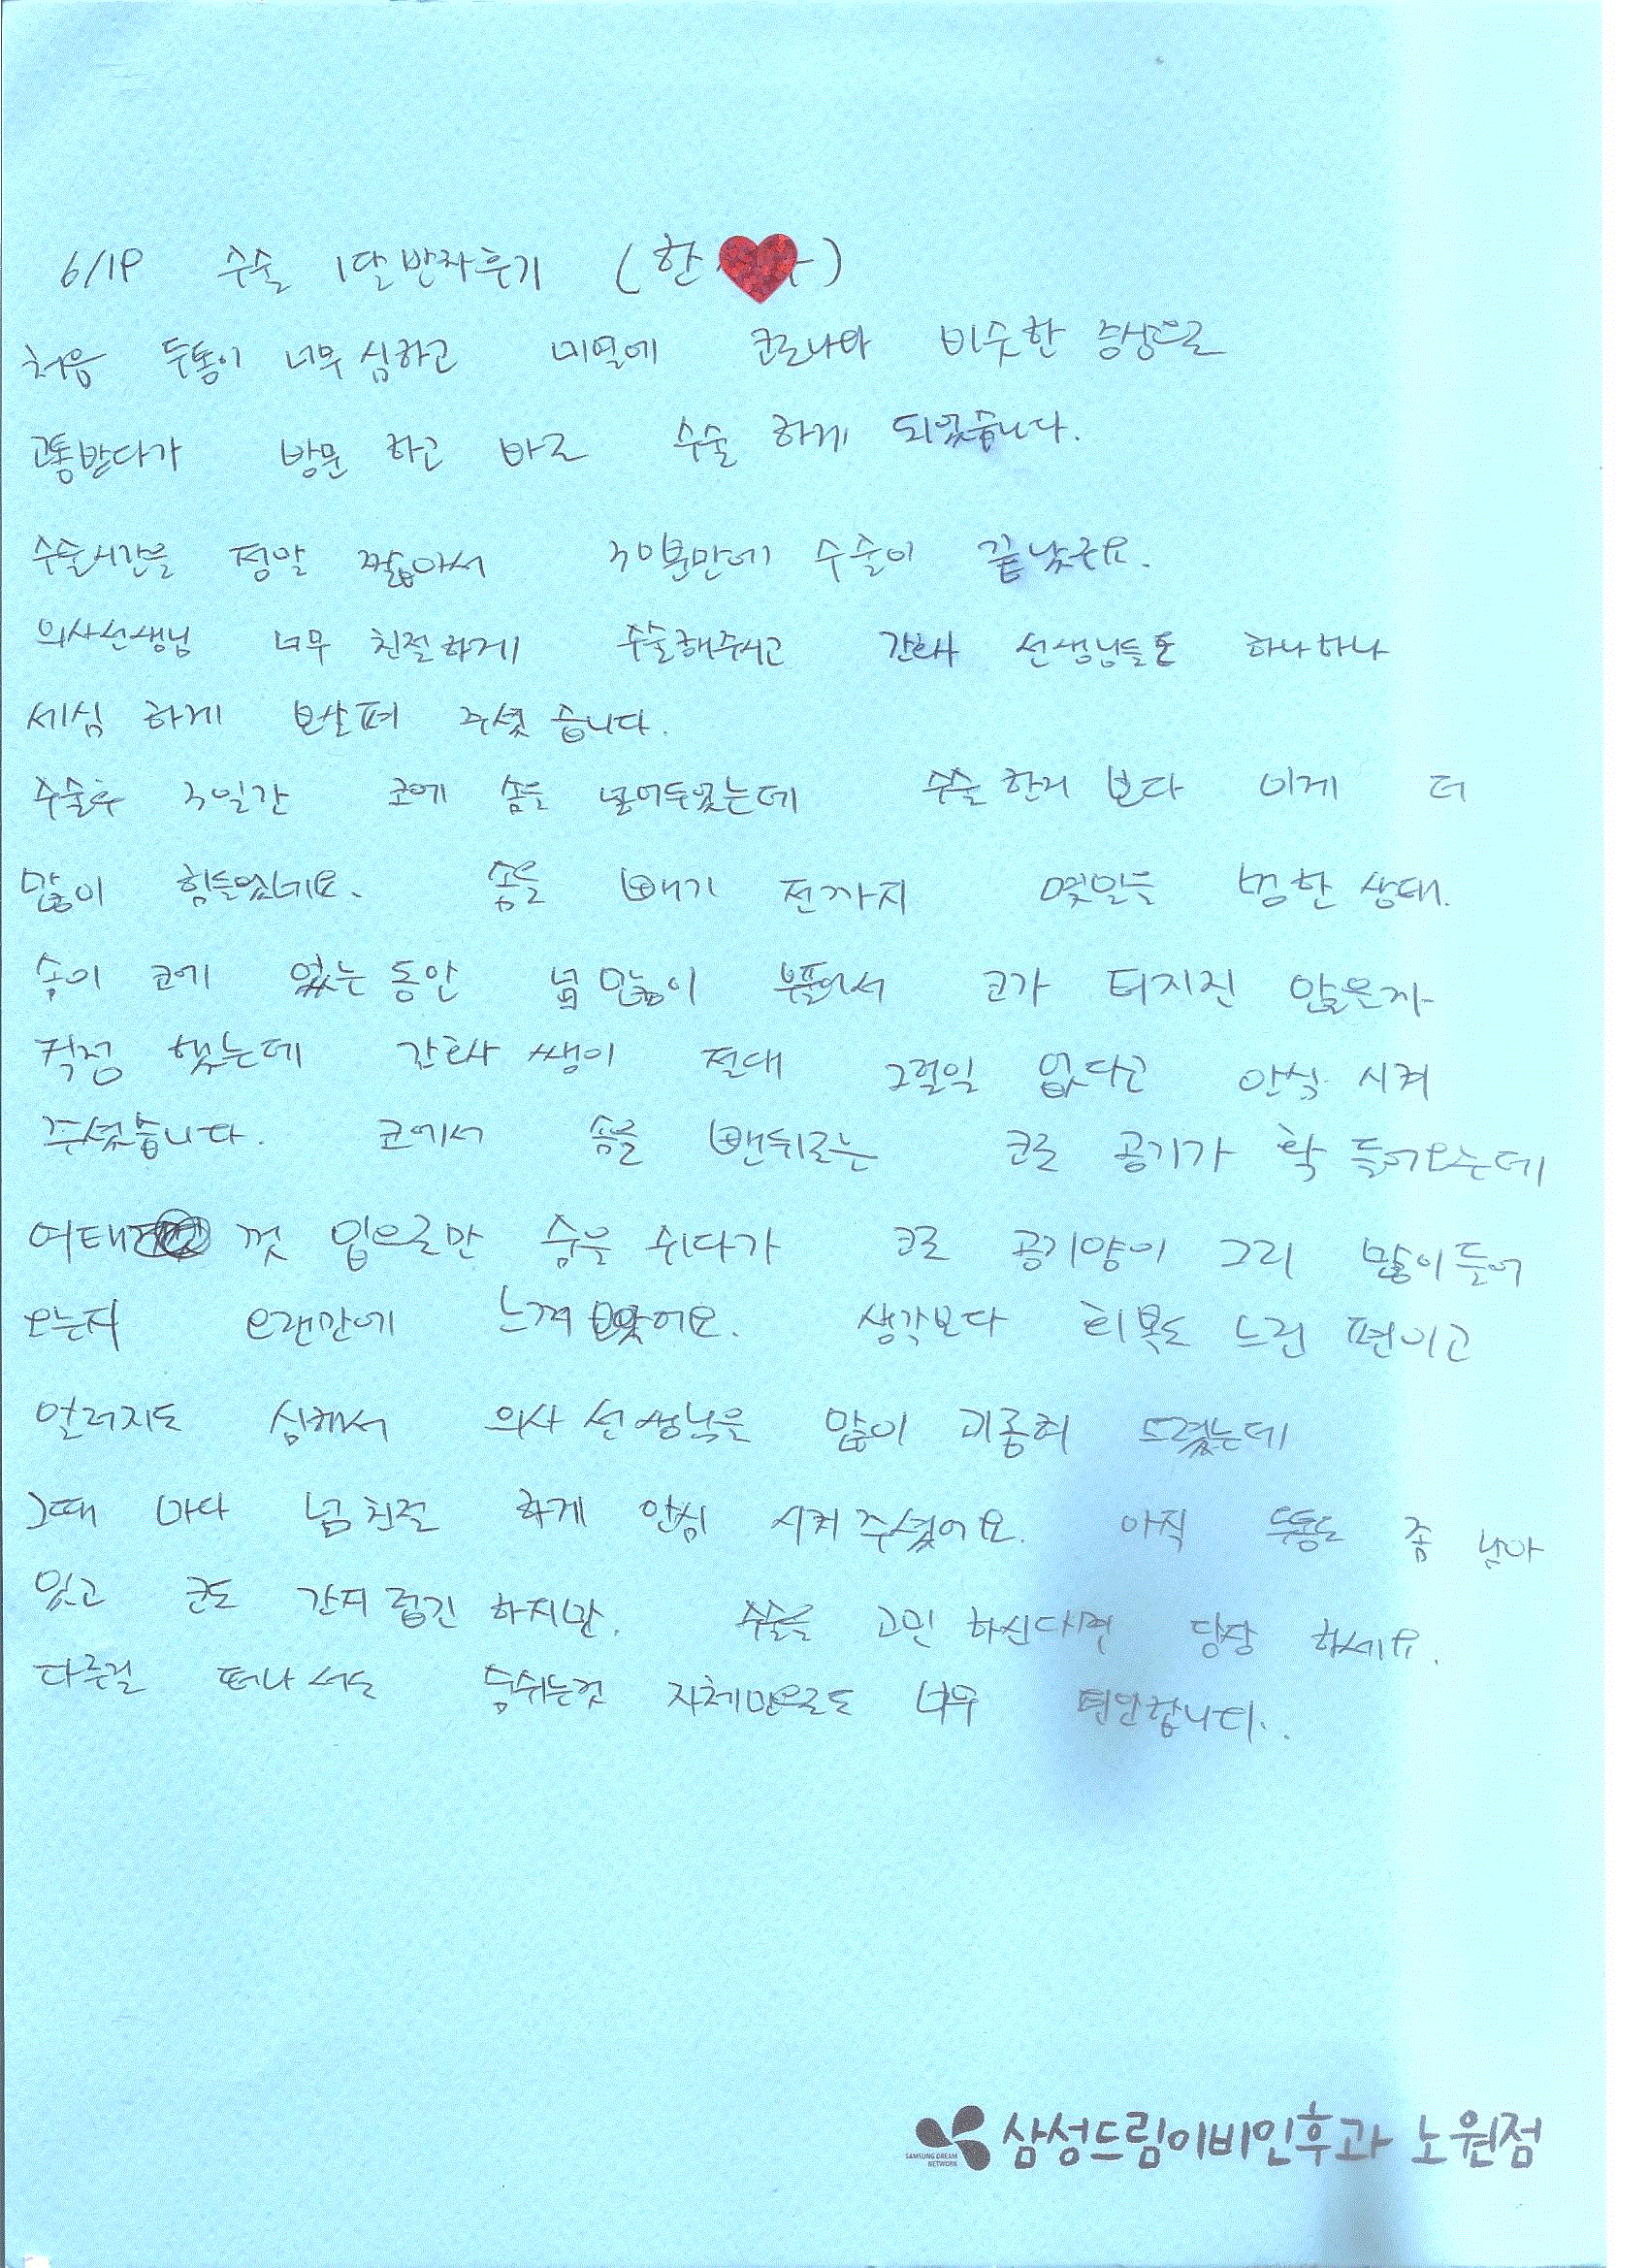 6/19 수술 1달반차후기 (한 )
처음 두통이 너무 심하고 미열에 코로나와 비슷한 증상으로
고통받다가 방문 하고 바로 수술 하게 되었습니다.
수술시간을 정말 짧아서 30분만에 수술이 끝났구요.
의사선생님 너무 친절하게 수술해주시고 간호사 선생님들도 하나하나
세심 하게 보살펴 주셨 습니다.
수술후 3일간 코에 솜을 넣어두었는데 수술 한거 보다 이게 더
많이 힘들었네요. 솜을 빼기 전까지 몇일을 멍한 상태.
솜이 코에 있는 동안 넘 많이 부풀어서 코가 터지진 않을까
걱정 했는데 간호사 쌤이 절대 그럴일 없다고 안심 시켜
주셨습니다. 코에서 솜을 뺀뒤로는 코로 공기가 확 들어오는데
여태 껏 입으로만 숨을 쉬다가 코로 공기양이 그리 많이 들어
오는지 오랜만에 느껴 보았어요. 생각보다 회복도 느린 편이고
알러지도 심해서 의사 선생님을 많이 괴롭혀 드렸는데
그때 마다 넘 친절 하게 안심 시켜 주셨어요. 아직 두통도 좀 남아
있고 코도 간지럽긴 하지만. 수술을 고민 하신다면 당장 하세요.
다른걸 떠나서도 숨쉬는것 자체만으로도 너무 편안합니다..
SAMSUNG DREAM
NETWORK
삼성드림이비인후과 노원점